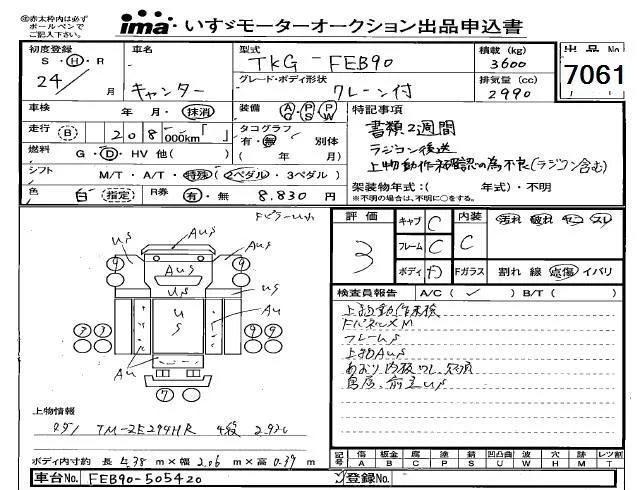 ㊟赤太枠内は必ず
ボールペンで
ご記入下さい。
ima いすゞモーターオークション出品申込書
初度登録 車名 型式 積載(kg) 出品No
S・H・R TKG-FEB90 3600 7061
24年 月 キャンター グレード・ボディ形状 クレーン付 排気量(cc) 2990
車検 年・月・抹消 装備 AG PS PW 特記事項
走行 B 208,000km「 」 タコグラフ 有・無 別体 ( 年 月) 書類2週間
ラジコン後送
燃料 G・D・HV 他( ) 上物動作未確認の為不良(ラジコン含む)
シフト M/T・A/T・特殊(2ペダル・3ペダル) 架装物年式:( 年式)・不明
※不明の場合は、不明に○をする。
色 白 指定 R券 有・無 8,830円
評価 3 キャブ C 内装 C 汚れ 破れ ヤニ スレ
フレーム C
ボディ D Fガラス 割れ 線 点傷 イバリ
検査員報告 A/C(✓) B/T( )
FパネルXM
フレームS
上物AUS
US AUS AUS
AUS
US US
U
S AU
AU
9 9
7 7 9 9
7
上物情報
タダノ TM-ZE294HR 4段 2.93t
ボディ内寸約 長 4.38m×幅 2.06m×高 0.39m
記号 傷 A 板金 B 腐 C 塗 P 錆 S 凹凸曲 U 波 W 穴 H 跡 M レツ割 T
車台No. FEB90-505420 登録No.